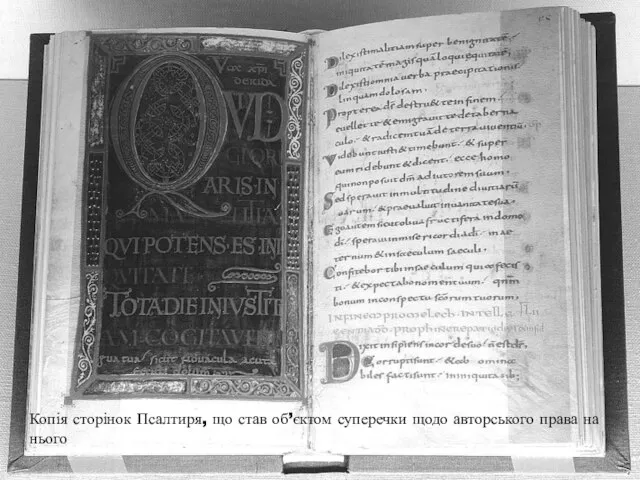 QUID
GLOR
ARIS·IN
MA TIIA
QVI POTENS·ES·IN I
TOTA DIE INIVSTIT
AM COGITAV
sicut novacula acuta
Dilexisti malitiam super benignitatē·
iniquitatē magis quā loqui equitatē·
Dilexisti omnia verba praecipitationis·
linguam dolosam·
Propterea dš destru& te in finem·
evellet te & emigravit te de taberna
culo· & radicem tuā de terra viventiū·
Videbunt iusti & timebunt· & super
eum ridebunt & dicent· ecce homo
qui non posuit dm̄ adiutorem suum·
Sed speravit in multitudine divitiarū
suarum· & praevaluit in vanitate sua·
Ego autem sicut oliva fructifera in domo
dī· speravi in misericordia dī· in ae
ternum & in saeculum saeculi·
Confitebor tibi in saeculum quia fecis
ti· & expectabo nomen tuum· qnm̄
bonum in conspectu scōrum tuorum·
Dixit insipiens in corde suo· n est dš·
Corrupti sunt· & abominabiles
facti sunt· in iniquitatib;
Копія сторінок Псалтиря, що став об’єктом суперечки щодо авторського права на
нього